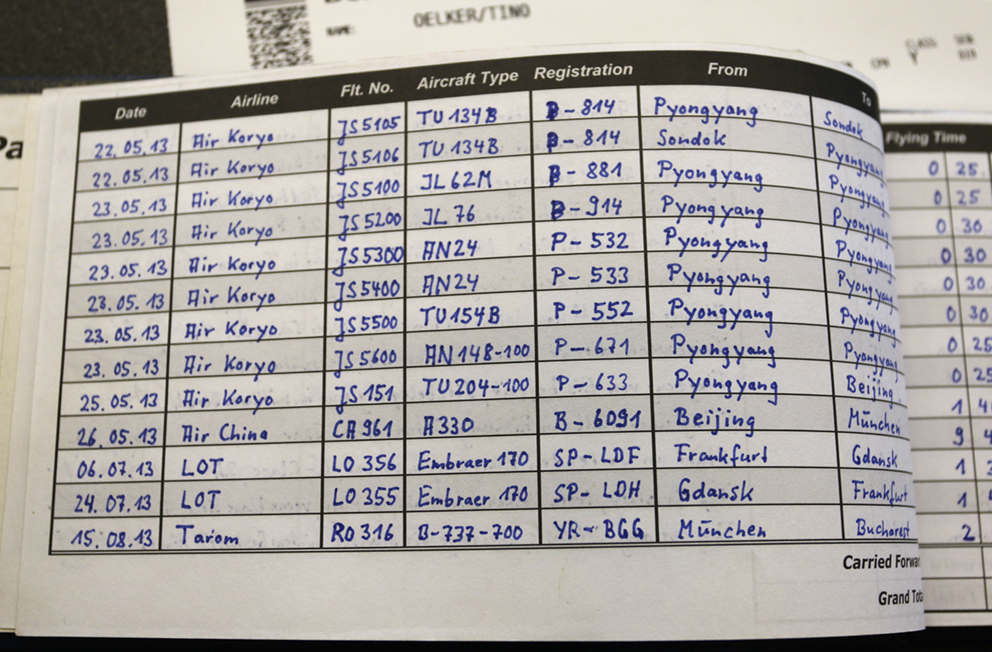 OELKER/TINO
NAME:
CLASS
Y
Pa
Date Airline Flt. No. Aircraft Type Registration From To Flying Time
22.05.13 Air Koryo JS5105 TU 134B P-814 Pyongyang Sondok 0 25
22.05.13 Air Koryo JS5106 TU 134B P-814 Sondok Pyongyang 0 25
23.05.13 Air Koryo JS5100 JL 62M P-881 Pyongyang Pyongyang 0 30
23.05.13 Air Koryo JS5200 JL 76 P-914 Pyongyang Pyongyang 0 30
23.05.13 Air Koryo JS5300 AN24 P-532 Pyongyang Pyongyang 0 30
23.05.13 Air Koryo JS5400 AN24 P-533 Pyongyang Pyongyang 0 30
23.05.13 Air Koryo JS5500 TU154B P-552 Pyongyang Pyongyang 0 25
23.05.13 Air Koryo JS5600 AN148-100 P-671 Pyongyang Pyongyang 0 25
25.05.13 Air Koryo JS151 TU204-100 P-633 Pyongyang Beijing 1
26.05.13 Air China CA961 A330 B-6091 Beijing München 9
06.07.13 LOT LO 356 Embraer 170 SP-LDF Frankfurt Gdansk 1
24.07.13 LOT LO 355 Embraer 170 SP-LDH Gdansk Frankfurt 1
15.08.13 Tarom RO 316 B-737-700 YR-BGG München Bucharest 2
Carried Forwa
Grand Tota